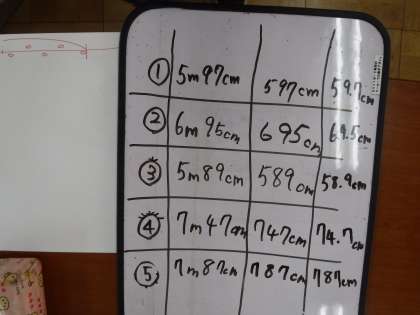 ① 5m97cm 597cm 59.7cm
② 6m95cm 695cm 69.5cm
③ 5m89cm 589cm 58.9cm
④ 7m47cm 747cm 74.7cm
⑤ 7m87cm 787cm 787cm